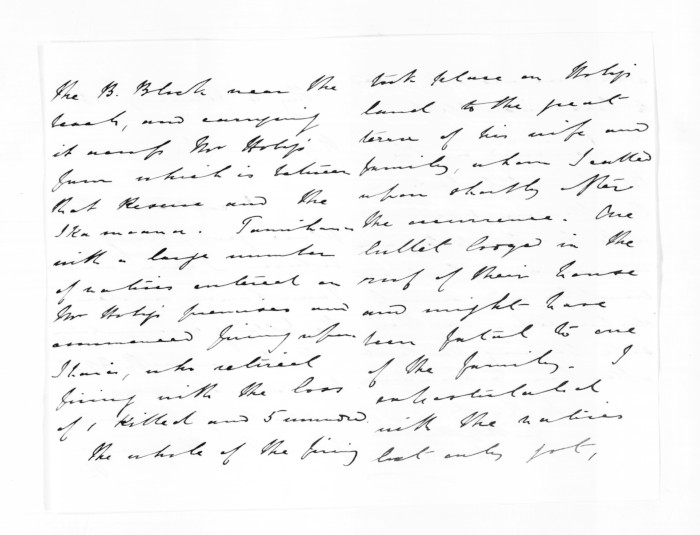 the B. Block near the
beach, and carrying
it across Mr Hobig's
farm which is between
that Reserve and the
Ikamaana. Tamihana
with a large number
of natives entered on
Mr Hobigs premises and
commenced firing upon
Ihaia, who retired
firing with the loss
of 1 killed and 5 wounded
The whole of the firing
took place on Hobigs
land to the great
terror of his wife and
family, whom I called
upon shortly after
the occurrence. One
bullet lodged in the
roof of their house
and might have
been fatal to one
of the family. I
expostulated
with the natives
but only got,